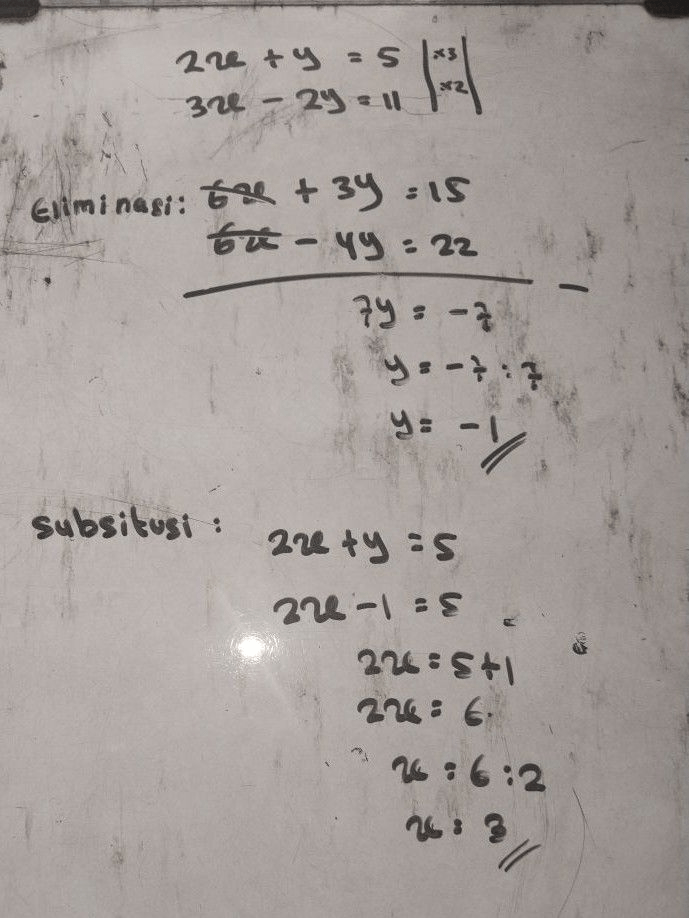 2x + y = 5 | x3 |
3x - 2y = 11 | x2 |
Eliminasi: 6x + 3y = 15
6x - 4y = 22
-
7y = -7
y = -7 : 7
y = -1
Subsitusi :
2x + y = 5
2x - 1 = 5
2x = 5+1
2x = 6
x = 6 : 2
x = 3